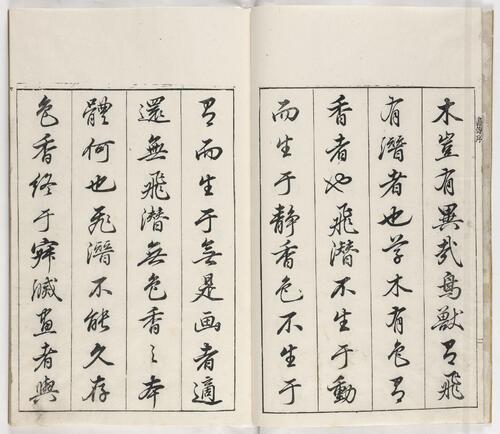 木豈有異哉鳥獸有飛
有潛者也草木有色有
香者也飛潛不生于動
而生于静香色不生于
有而生于無是画者適
還無飛潛無色香之本
體何也飛潛不能久存
色香終于寂滅畫者與